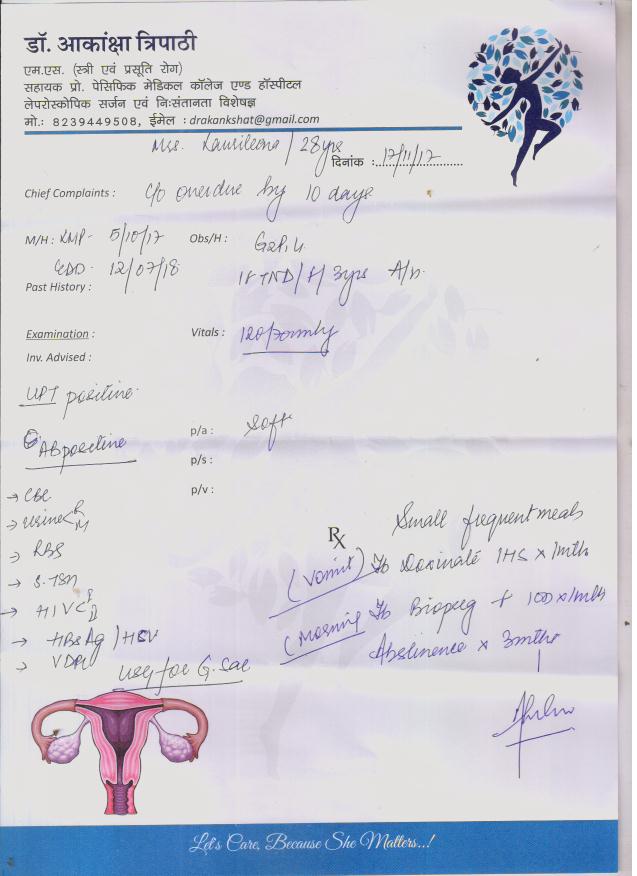 डॉ. आकांक्षा त्रिपाठी
एम.एस. (स्त्री एवं प्रसूति रोग)
सहायक प्रो. पेसिफिक मेडिकल कॉलेज एण्ड हॉस्पीटल
लेपरोस्कोपिक सर्जन एवं निःसंतानता विशेषज्ञ
मो.: 8239449508, ईमेल : drakankshat@gmail.com
28yrs
दिनांक : 17/11/17
Chief Complaints : c/o overdue by 10 days
M/H : LMP- 5/10/17 Obs/H : G2P1L1
EDD- 12/07/18
Past History : 3yrs
Examination : Vitals : 120/70mmHg
Inv. Advised :
UPT positive
AB positive
p/a : Soft
p/s :
p/v :
→ CBC
→ urine R M
→ RBS
→ S.TSH
→ HIV I II
→ HBsAg / HCV
→ VDRL
USG for G. Sac
Rx Small frequent meals
(Vomit) Tb Doxinate 1HS x 1mth
(Morning) Tb Biopreg + 1OD x 1mth
Abstinence x 3mths
Let's Care, Because She Matters..!